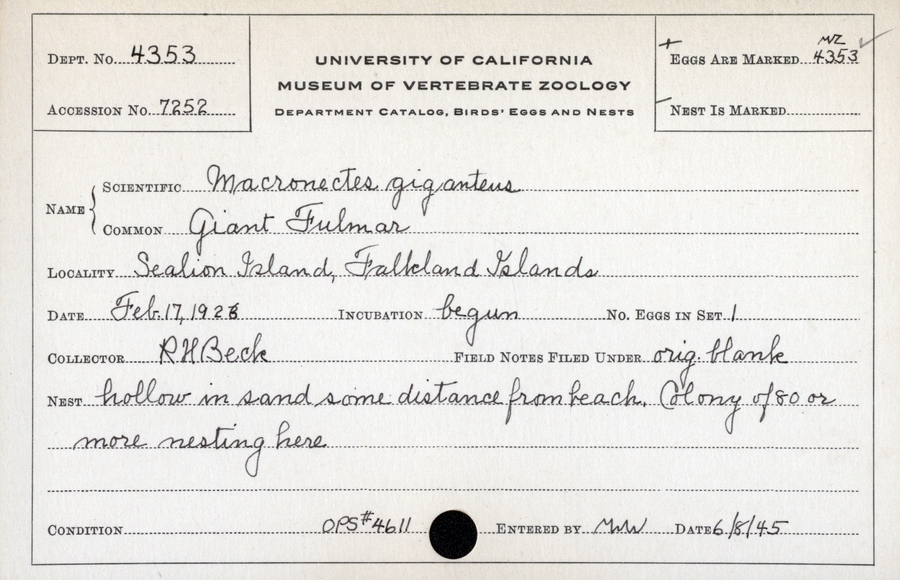 Dept. No. 4353
Accession No. 7252
UNIVERSITY OF CALIFORNIA
MUSEUM OF VERTEBRATE ZOOLOGY
Department Catalog, Birds' Eggs and Nests
MVZ
Eggs Are Marked 4353
Nest Is Marked
Name
Scientific Macronectes giganteus
Common Giant Fulmar
Locality Sealion Island, Falkland Islands
Date Feb. 17, 1926 Incubation begun No. Eggs in Set 1
Collector RHBeck Field Notes Filed Under orig. blank
Nest hollow in sand some distance from beach. Colony of 80 or
more nesting here
Condition OPS#4611 Entered by Date 6/8/45